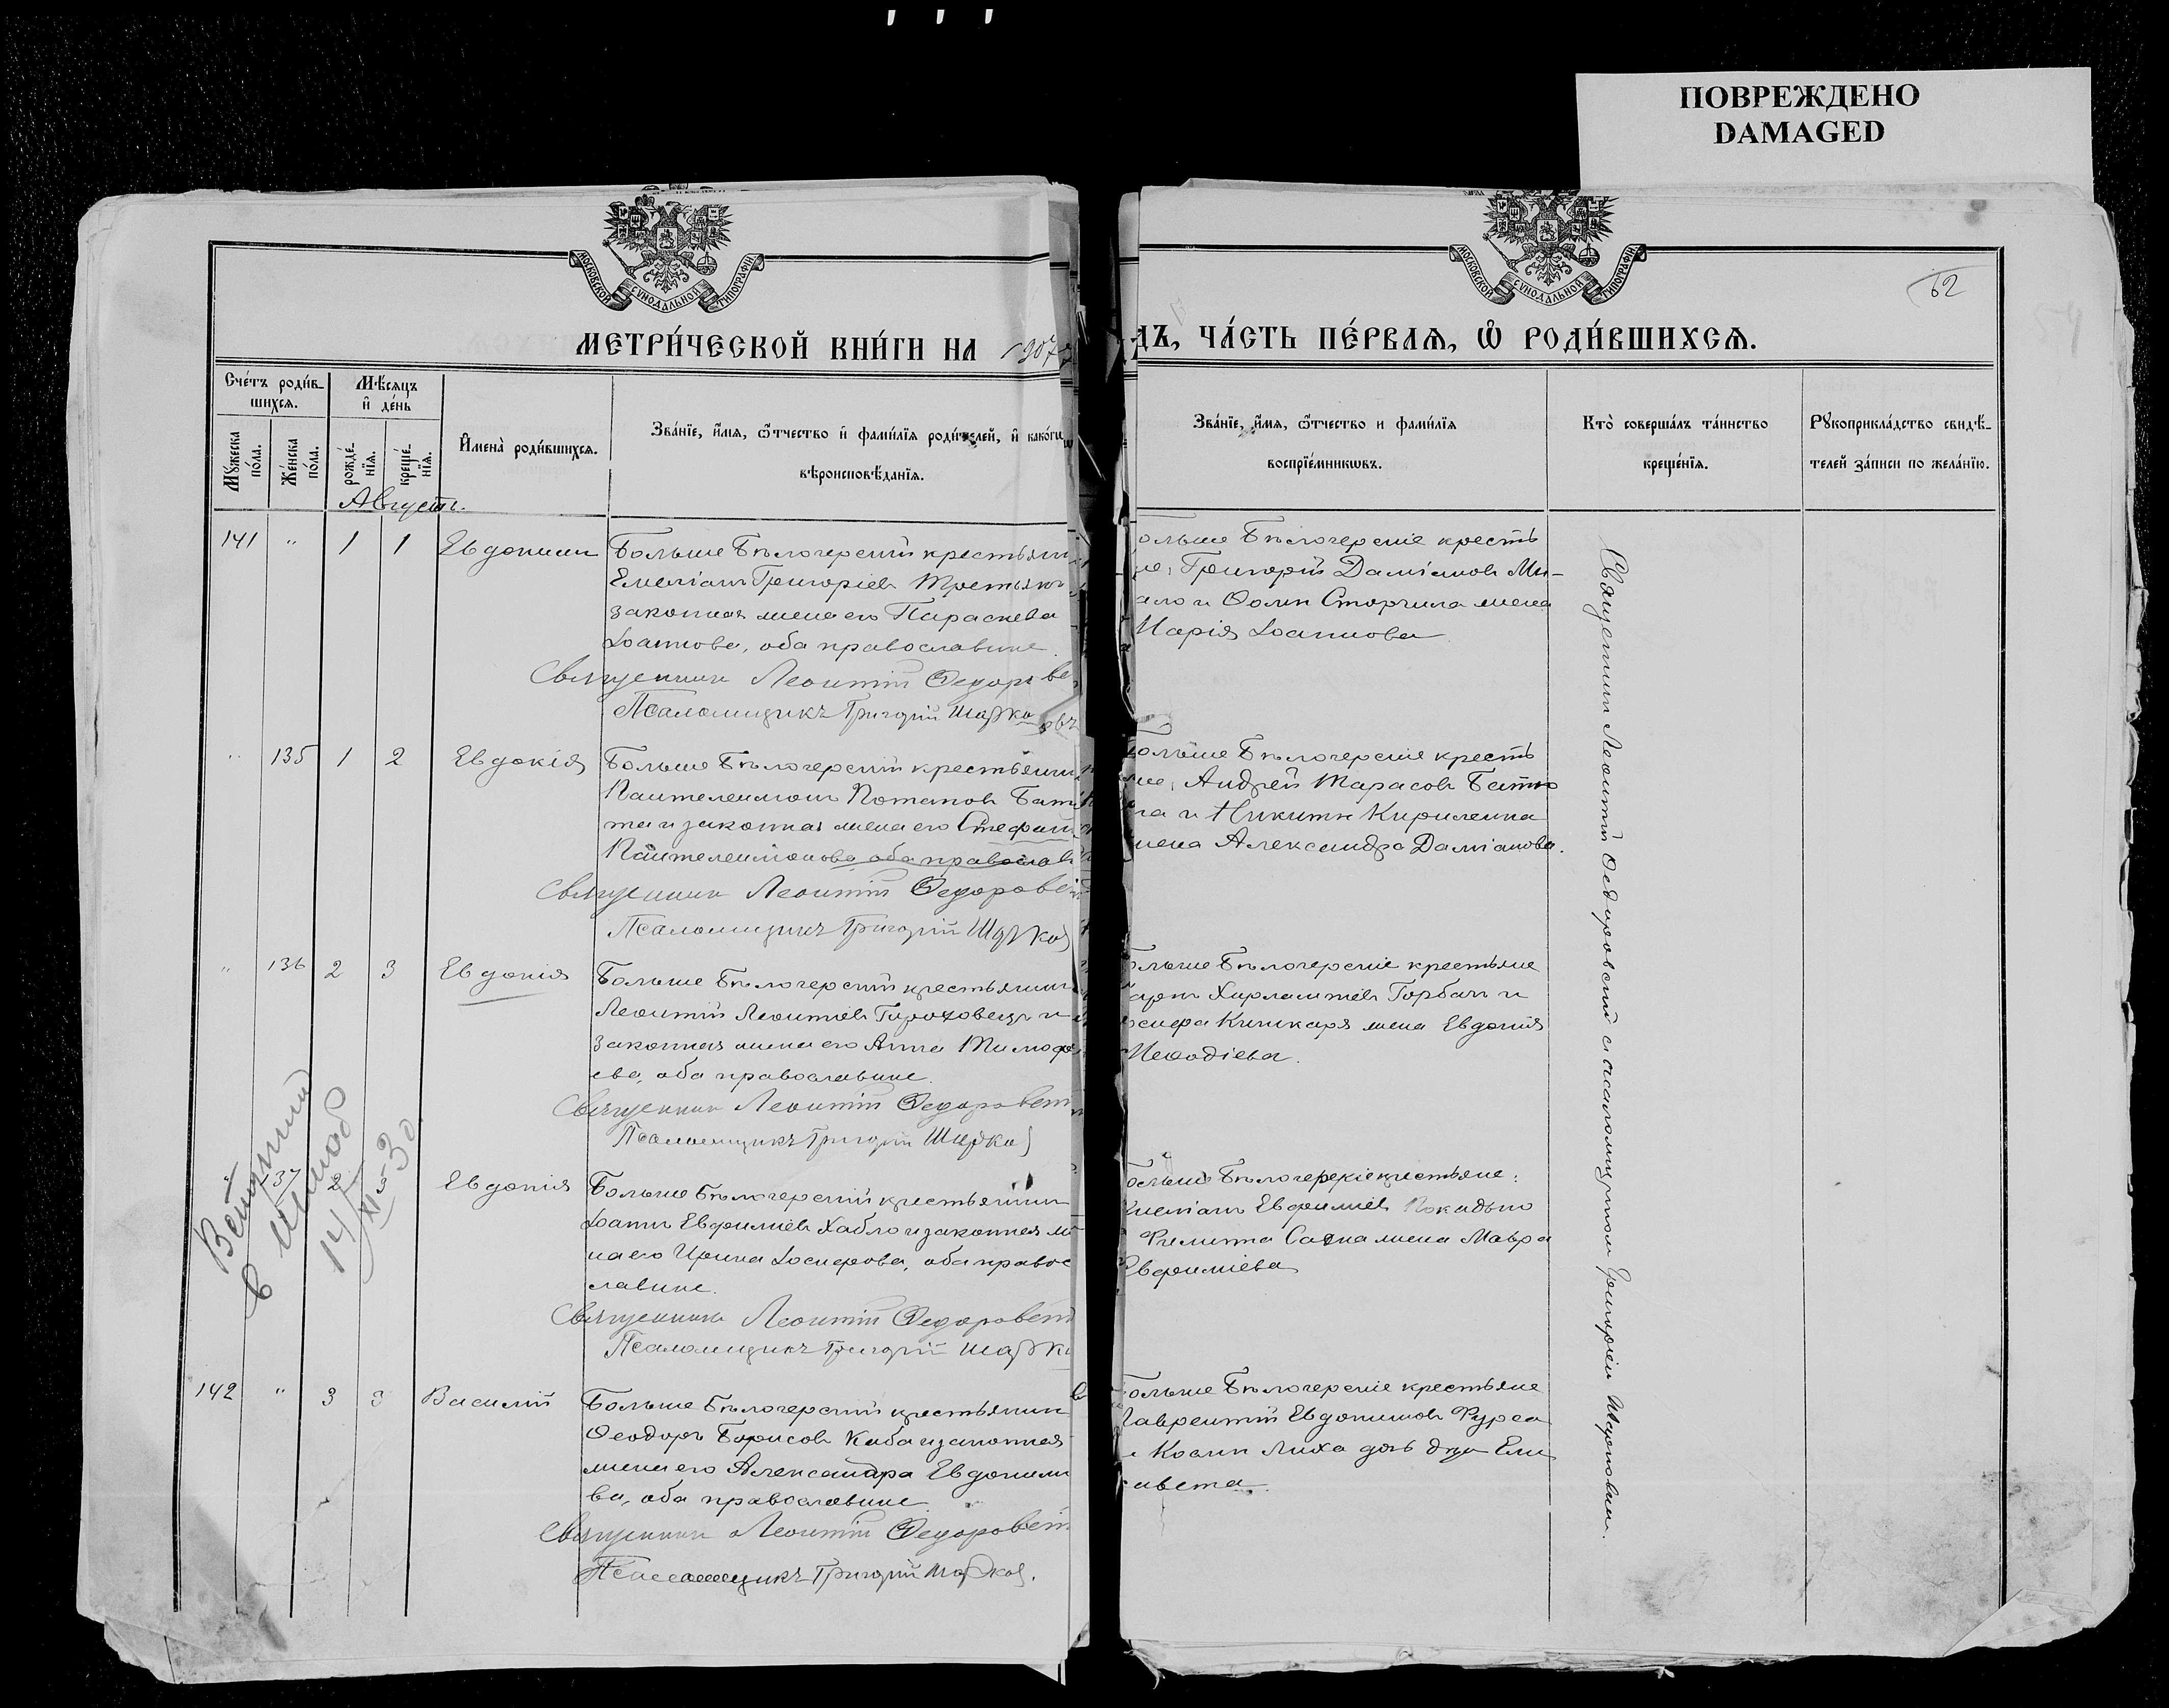 ПОВРЕЖДЕНО
DAMAGED
МОСКОВСКОЙ СУНОДАЛЬНОЙ ТИПОГРАФІИ
МОСКОВСКОЙ СУНОДАЛЬНОЙ ТИПОГРАФІИ
62
МЕТРИ́ЧЕСКОЙ КНИ́ГИ НА 1907
ДЪ, ЧА́СТЬ ПЕ́РВАЯ, Ѽ РОДИ́ВШИХСЯ.
Сче́тъ роди́в-
шихся.
Мѣ́сяцъ
и҆ де́нь
Мꙋ́жеска
по́ла.
Же́нска
по́ла.
рожде́-
нїя.
креще́-
нїя.
И҆мена̀ роди́вшихся.
Зва́нїе, и҆́мя, ѻ҆́тчество и҆ фами́лїя роди́телей, и҆ како́гѡ
вѣроисповѣ́данїя.
Зва́нїе, и҆́мя, ѻ҆́тчество и фами́лїя
воспрїе́мникѡвъ.
Кто̀ соверша́лъ та́инство
креще́нїя.
Рꙋкоприкла́дство свидѣ́-
телей за́писи по жела́нїю.
Августъ.
141 " 1 1 Евдоким Больше Бѣлозерскій крестьянин
Емеліан Григоріев Третьяк
законная жена его Параскева
Іоаннова, оба православные.
Священник Леонтій Федоров
Псаломщикъ Григорій Шарковъ
ольше Бѣлозерскіе кресть
не, Григорій Даміанов Ми-
ало и Ѳомы Сторчила жена
Марія Іоаннова
" 135 1 2 Евдокія Больше Бѣлозерскій крестьянин
Пантелеимон Потапов Бат
та и законная жена его Стефан
Пантелеимонова, оба православ
Священник Леонтій Федоров
Псаломщикъ Григорій Шарков
ольше Бѣлозерскіе кресть
не, Андрей Тарасов Батю
та и Никиты Кириленка
жена Александра Даміанова.
" 136 2 3 Евдокія Больше Бѣлозерскій крестьянин
Леонтій Леонтіев Гороховец и
законная жена его Анна Тимоѳе
ева, оба православные.
Священник Леонтій Федоров
Псаломщикъ Григорій Шарков
ольше Бѣлозерскіе крестьяне
Харлампіев Горбач и
осифа Кишкаря жена Евдокія
Меѳодіева.
137 2 Евдокія Больше Бѣлозерскій крестьянин
Іоанн Евфиміев Хабло и законная же
на его Ирина Іосифова, оба право
славные.
Священник Леонтій Федоров
Псаломщикъ Григорій Шарк
ольше Бѣлозерскіе крестьяне:
Емеліан Евфиміев Покадько
Филиппа Сафа жена Мавра
Евфиміева
142 " 3 3 Василій Больше Бѣлозерскій крестьянин
Ѳеодор Борисов Каба и законная
жена его Александра Евдоким
ва, оба православные
Священник Леонтій Федоров
Псаломщикъ Григорій Шарков.
ольше Бѣлозерскіе крестьяне
Лаврентій Евдокимов Фурса
и Козмы Лиха дочь д-ца Ели
савета
Священник Леонтій Федоровскій с псаломщиком Григоріем Шарковым.